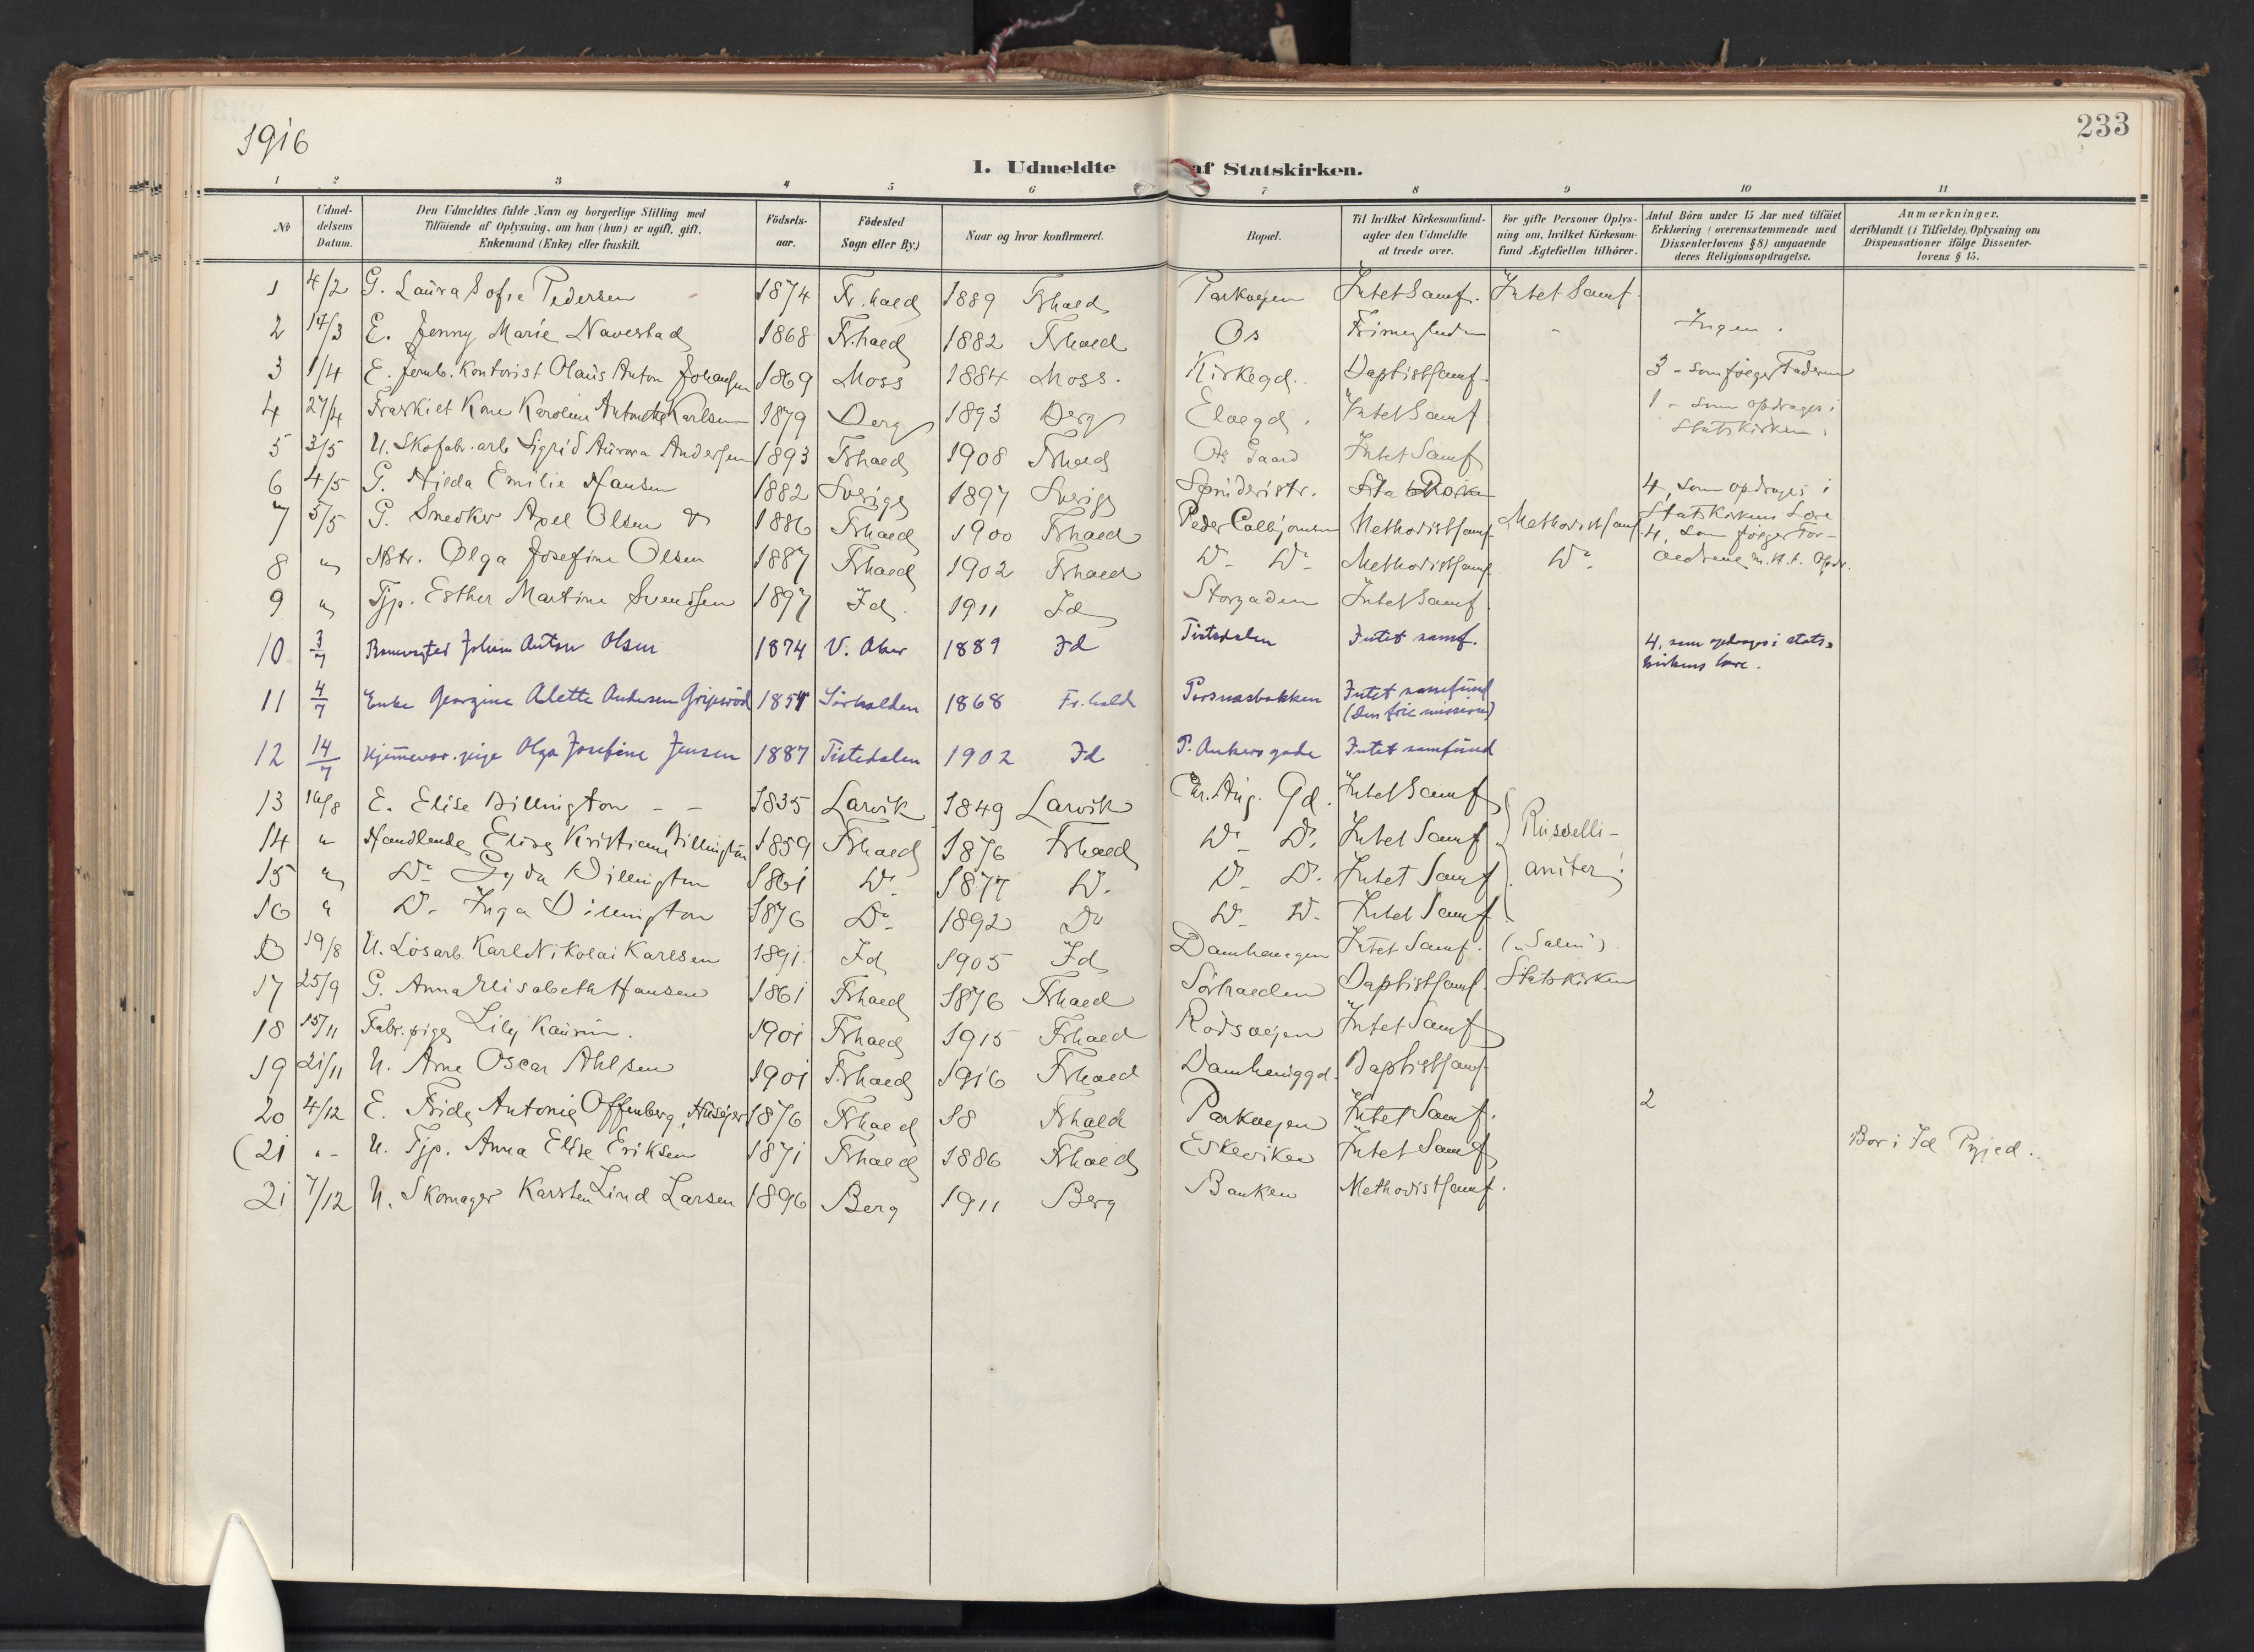 1916
233
I. Udmeldte af Statskirken.
1 2 3 4 5 6 7 8 9 10 11
No
Udmel-
delsens
Datum.
Den Udmeldtes fulde Navn og borgerlige Stilling med
Tilföiende af Oplysning, om han (hun) er ugift, gift,
Enkemand (Enke) eller fraskilt.
Födsels-
aar.
Födested
Sogn eller By.)
Naar og hvor konfirmeret.
Bopæl.
Til hvilket Kirkesamfund
agter den Udmeldte
at træde over.
For gifte Personer Oplys-
ning om, hvilket Kirkesam-
fund Ægtefællen tilhörer.
Antal Börn under 15 Aar med tilföiet
Erklæring (overensstemmende med
Dissenterlovens § 8) angaaende
deres Religionsopdragelse.
Anmærkninger,
deriblandt (i Tilfælde) Oplysning om
Dispensationer ifölge Dissenter-
lovens § 15.
1 4/2 G. Laura Sofie Pedersen 1874 Fr.hald 1889 Frhald Parkvejen Intet Samf. Intet Samf.
2 14/3 E. Jenny Marie Navestad 1868 Fr.hald 1882 Frhald Os - Ingen.
3 1/4 E. Jernb. Kontorist Olaus Anton Johansen 1869 Moss 1884 Moss. Kirkegd. Baptistsamf. 3 - som følger Faderen
4 27/4 Fraskilt Kone Karoline Antonette Karlsen 1879 Berg 1893 Berg Intet Samf 1 - som opdrages i
Statskirken.
5 3/5 U. Skofabr. arb Sigrid Aurora Andersen 1893 Frhald 1908 Frhald Os Gaard Intet Samf
6 4/5 G. Hilda Emilie Hansen 1882 Sverige 1897 Sverige 4, som opdrages i
Statskirkens Lære
7 5/5 G. Snedker Axel Olsen & 1886 Frhald 1900 Frhald Peder Colbjørnsen Methodistsamf. Methodistsamf. 4, som følger For-
ældrene m. H. t. Opdr.
8 " Hstr. Olga Josefine Olsen 1887 Frhald 1902 Frhald Do Do Methodistsamf Do
9 " Tjp. Esther Martine Svendsen 1897 Id. 1911 Id Storgaden Intet Samf.
10 3/7 Johan Anton Olsen 1874 V. Aker 1889 Id Tistedalen Intet samf. 4, som opdrages i stats-
kirkens lære.
11 4/7 Enke Georgine Alette Andersen Gripsröd Sörhalden 1868 Fr.hald Intet samfund
(den frie mission)
12 14/7 Olga Josefine Jensen 1887 Tistedalen 1902 Id P. Ankers gade Intet samfund
13 16/8 E. Elise Billington - - 1835 Larvik 1849 Larvik Chr. Aug. Gd. Intet Samf Russelli-
14 " Handlende Elise Kristiane Billington 1859 Frhald 1876 Frhald Do Do. Intet Samf aniter!
15 " Do Gyda Billington 1861 Do. 1877 Do. Do Do. Intet Samf
16 " Do. Inga Billington 1876 Do. 1892 Do Do Do. Intet Samf.
19/8 U. Løsarb. Karl Nikolai Karlsen 1891. Id 1905 Id Damhaugen Intet Samf. ("Salen")
17 25/9 G. Anna Elisabeth Hansen 1861 Frhald 1876 Frhald Sörhalden Baptistsamf. Statskirken
18 15/11 Fabr.pige Lily Kaurin. 1901 Frhald 1915 Frhald Rødsvejen Intet Samf
19 21/11 U. Arne Oscar Ahlsen 1901 Frhald 1916 Frhald Baptistsamf
20 4/12 E. Frida Antonie Offenberg, Husejer 1876 Frhald 18 Frhald Parkvejen Intet Samf. 2
(21 " - U. Tjp. Anna Elise Eriksen 1871 Frhald 1886 Frhald Eskeviken Intet Samf Bor i Id
21 7/12 U. Skomager Karsten Lind Larsen 1896 Berg 1911 Berg Banken Methodistsamf.